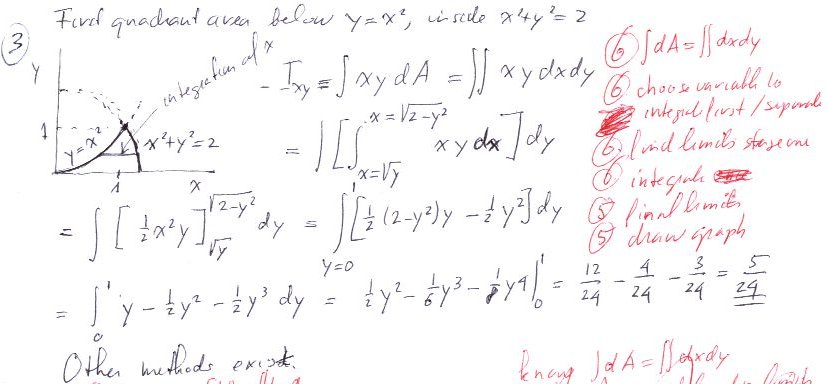 ③ First quadrant area below y = x², inside x²+y² = 2
y
integration of x
1
y = x²
x²+y² = 2
1
x
- I_xy ≡ ∫ xy dA = ∬ xy dxdy
= ∫ [ ∫_{x=√y}^{x=√(2-y²)} xy dx ] dy
= ∫ [ ½x²y ]_{√y}^{√(2-y²)} dy = ∫_{y=0}^{1} [ ½(2-y²)y - ½y² ] dy
= ∫_0^1 y - ½y² - ½y³ dy = ½y² - ⅙y³ - ⅛y⁴ |_0^1 = 12/24 - 4/24 - 3/24 = 5/24
Other methods exist.
⑥ ∫dA = ∬dxdy
⑥ choose variable to
integral first /
⑥ find limits stage one
⑥ integrate
⑤ final limits
⑤ draw graph
∫dA = ∬dxdy
limits